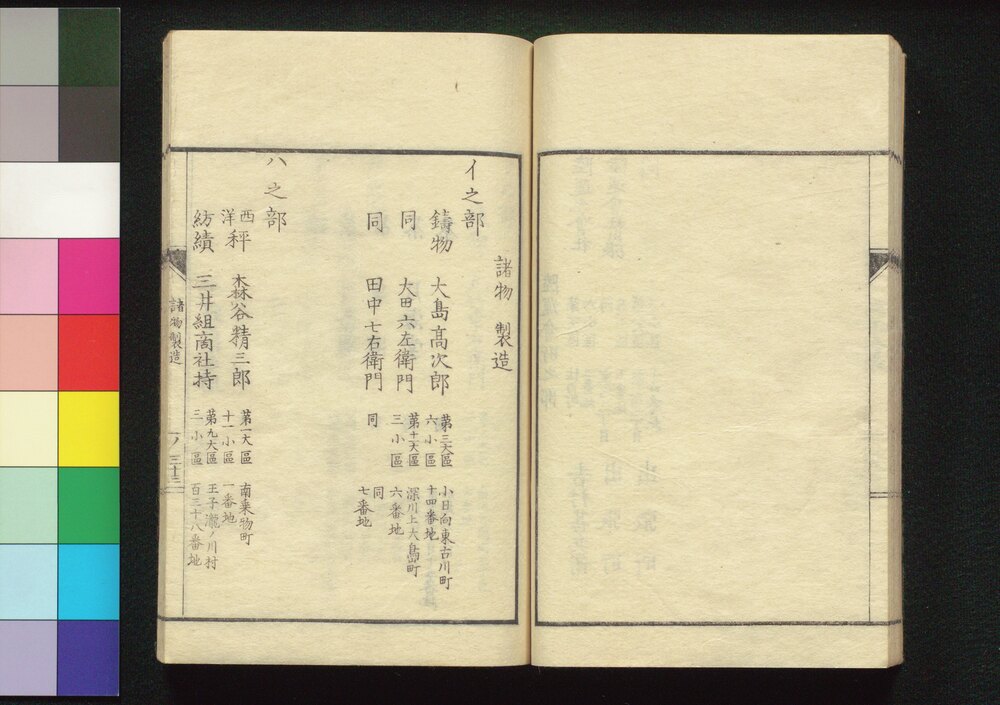 諸物製造
イ之部
鋳物 大島髙次郎 第三大區六小區 小日向東古川町十四番地
同 大田六左衛門 第十一大區三小區 深川上大島町六番地
同 田中七右衛門 同 同七番地
ハ之部
西洋秤 森谷精三郎 第一大區十一小區 南乗物町一番地
紡績 三井組商社持 第九大區三小區 王子瀧ノ川村百三十八番地
諸物製造